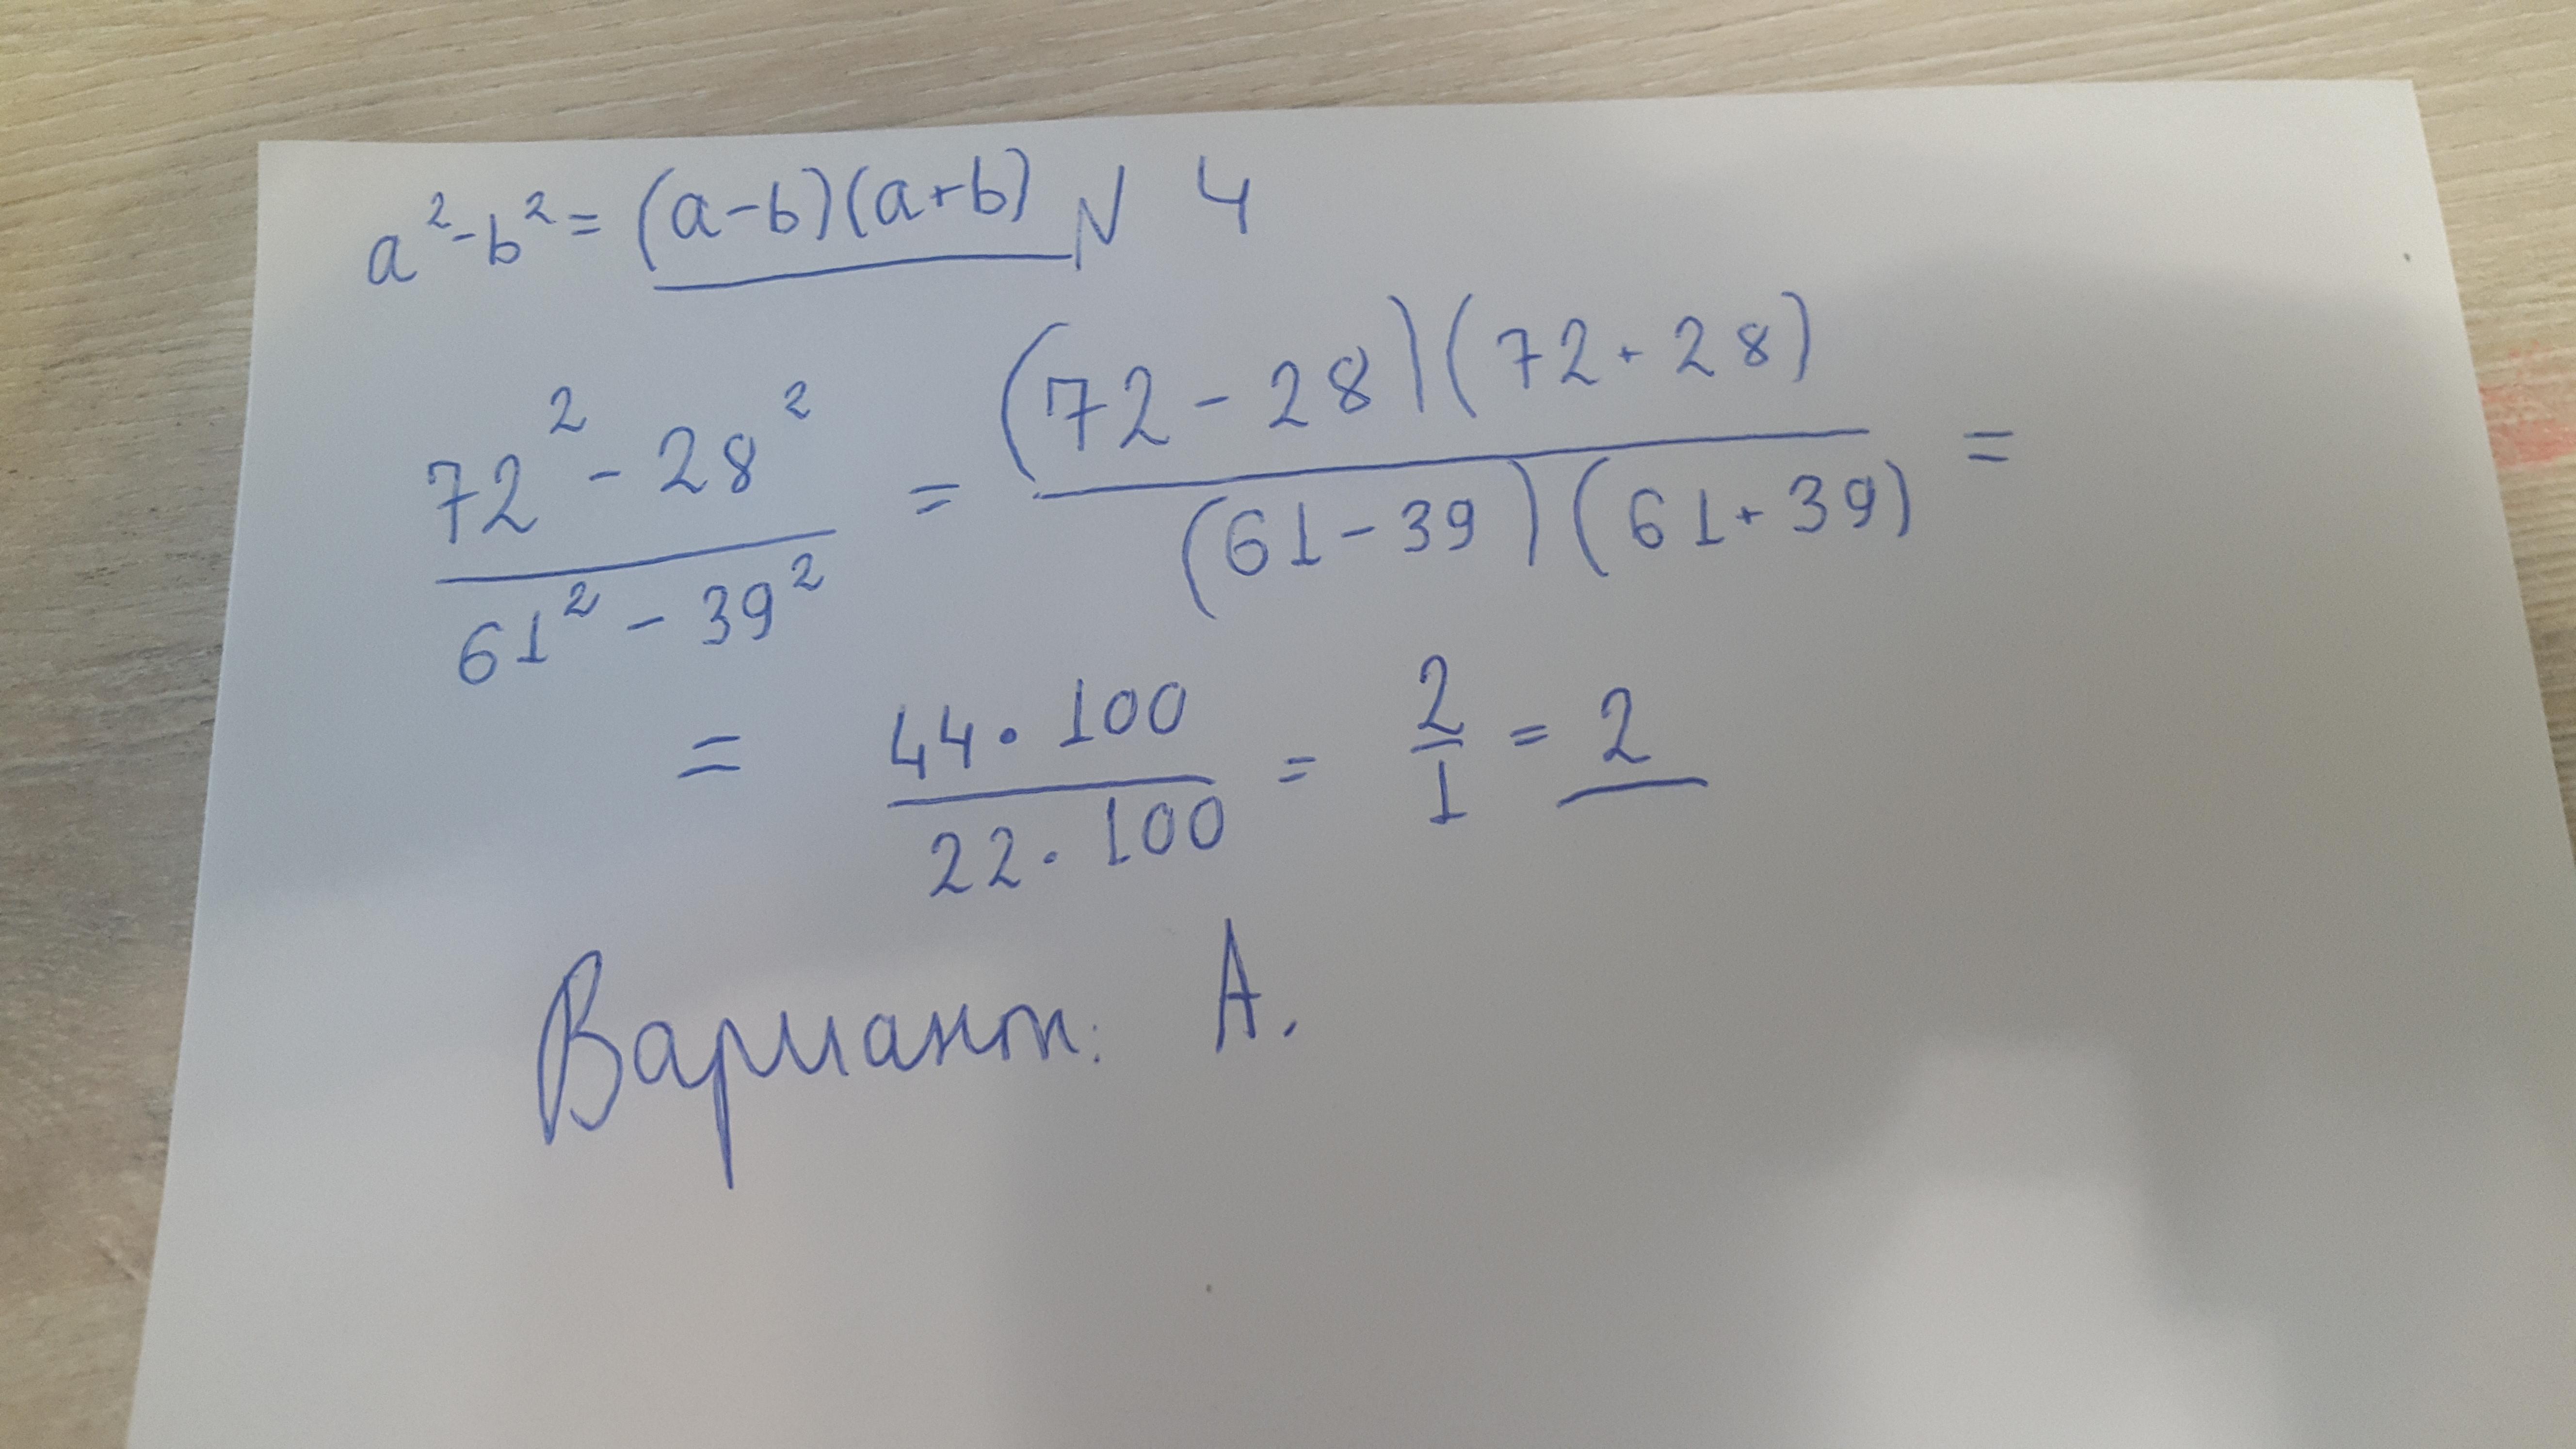 a² - b² = (a-b)(a+b) N 4
72² - 28² / 61² - 39² = (72 - 28)(72 + 28) / (61 - 39)(61 + 39) =
= 44 · 100 / 22 · 100 = 2/1 = 2
Вариант: А.